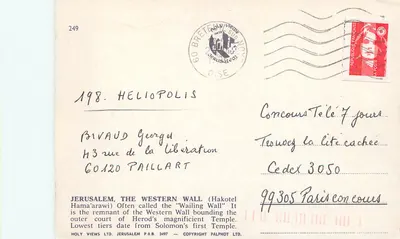 249
60 BRETEUIL
OISE
198. HELIOPOLIS
BIVAUD Georges
43 rue de la libération
60120 PAILLART
Concours Télé 7 jours
Trouvez la cité cachée
Cedex 3050
99305 Paris concours
JERUSALEM, THE WESTERN WALL (Hakotel
Hama'arawi) Often called the "Wailing Wall" It
is the remnant of the Western Wall bounding the
outer court of Herod's magnificent Temple.
Lowest tiers date from Solomon's first Temple.
HOLY VIEWS LTD. JERUSALEM P.O.B. 2497 — COPYRIGHT PALPHOT LTD.